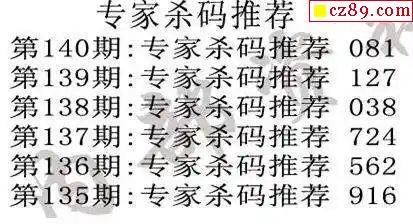 专家杀码推荐
cz89.com
第140期:专家杀码推荐 081
第139期:专家杀码推荐 127
第138期:专家杀码推荐 038
第137期:专家杀码推荐 724
第136期:专家杀码推荐 562
第135期:专家杀码推荐 916